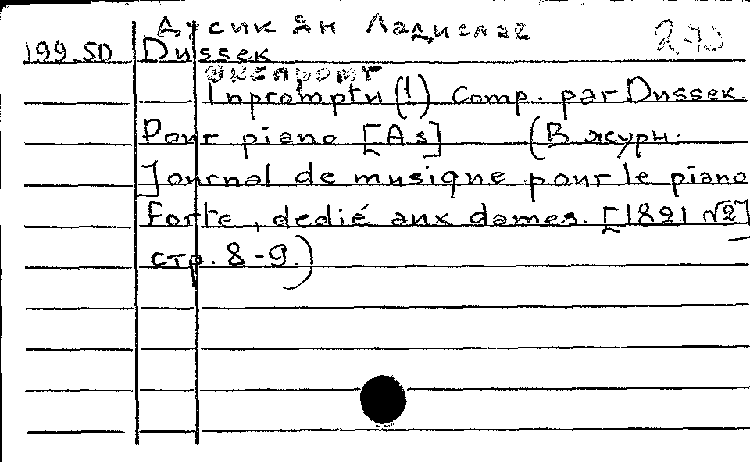 Дусик Ян Ладислав
199.50 Dussek
экспромт
Inpromptu (!) comp. par Dussek
Pour piano [As] (В журн.
Journal de musique pour le piano
forte, dedié aux dames. [1821 №2]
стр. 8-9.)